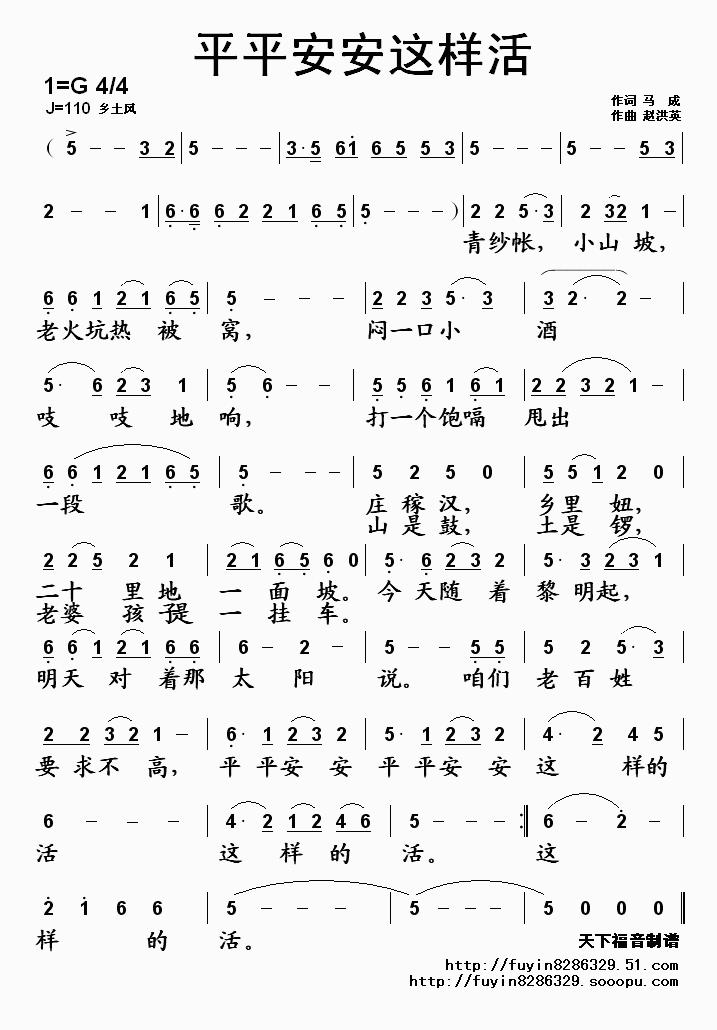 平平安安这样活
1=G 4/4
J=110 乡土风
作词 马 成
作曲 赵洪英
( 5 - - 3 2 | 5 - - - | 3· 5 6 1 6 5 5 3 | 5 - - - | 5 - - 5 3 |
2 - - 1 | 6· 6 6 2 2 1 6 5 | 5 - - - ) | 2 2 5· 3 | 2 3 2 1 - |
青纱帐， 小山 坡，
6 6 1 2 1 6 5 | 5 - - - | 2 2 3 5· 3 | 3 2· 2 - |
老火坑热 被 窝， 闷一口小 酒
5· 6 2 3 1 | 5· 6 - - | 5 5 6 1 6 1 | 2 2 3 2 1 - |
吱 吱 地 响， 打一个饱嗝 甩出
6 6 1 2 1 6 5 | 5 - - - | 5 2 5 0 | 5 5 1 2 0 |
一段 歌。 庄 稼 汉， 乡里 妞，
山 是 鼓， 土是 锣，
2 2 5 2 1 | 2 1 6 5 6 0 | 5· 6 2 3 2 | 5· 3 2 3 1 |
二十 里地 一 面 坡。 今 天随 着 黎 明起，
老婆 孩子是 一 挂 车。
6 6 1 2 1 6 6 | 6 - 2 - | 5 - - 5 5 | 5 2 5· 3 |
明天 对 着那 太 阳 说。 咱们 老 百 姓
2 2 3 2 1 - | 6· 1 2 3 2 | 5· 1 2 3 2 | 4· 2 4 5 |
要 求不 高， 平 平安 安 平 平安 安 这 样的
6 - - - | 4· 2 1 2 4 6 | 5 - - - :‖ 6 - 2 - |
活 这 样 的 活。 这
2 1 6 6 | 5 - - - | 5 - - - | 5 0 0 0 ‖
样 的 活。
天下福音制谱
http://fuyin8286329.51.com
http://fuyin8286329.sooopu.com